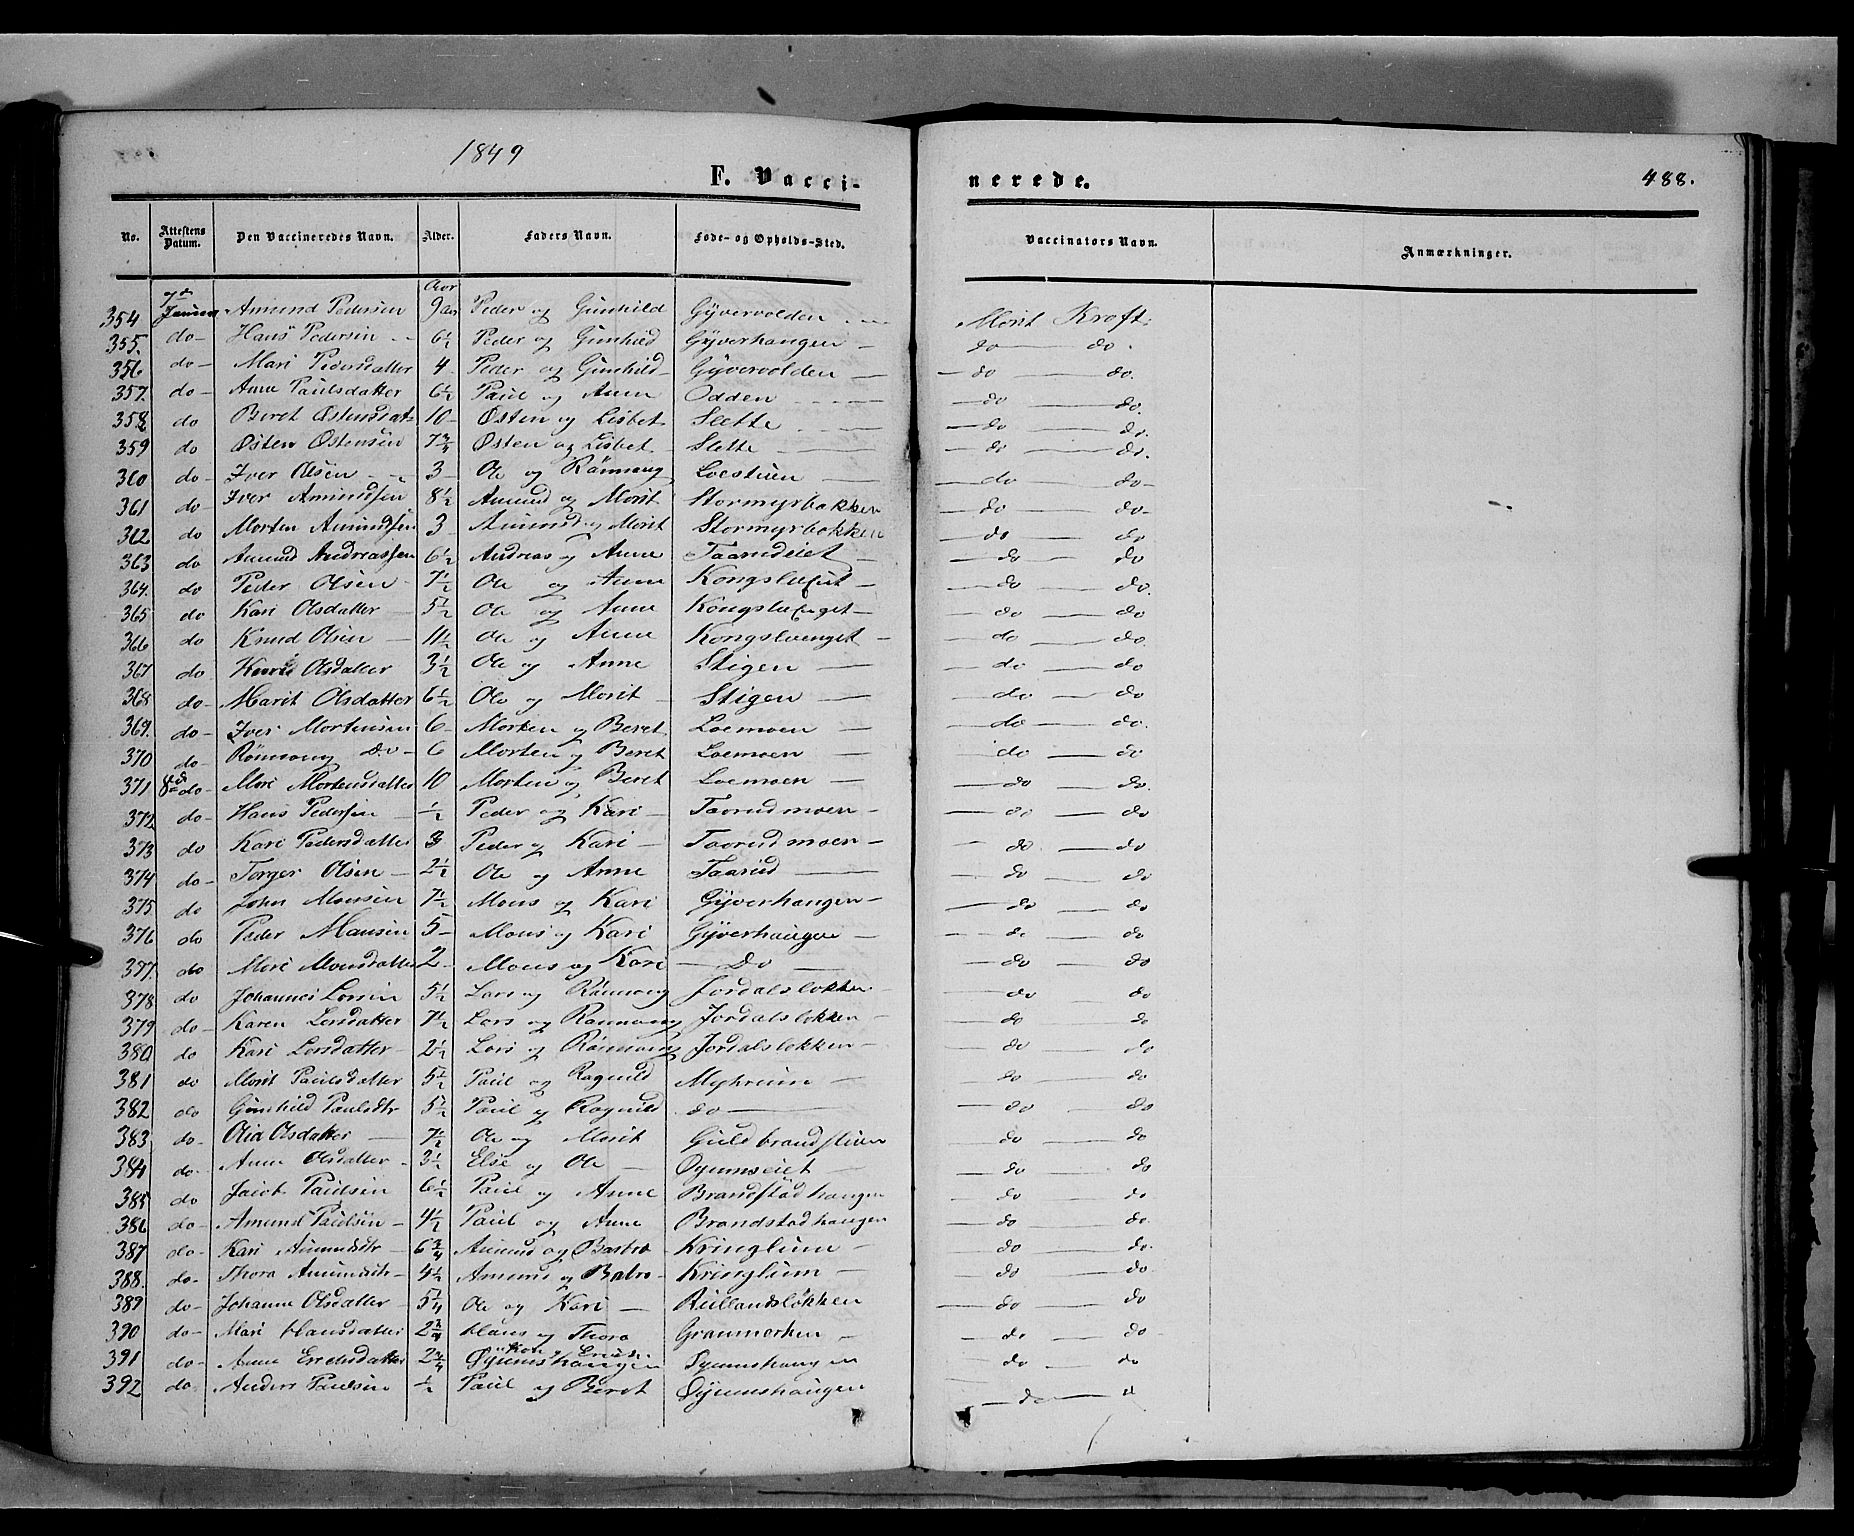 1849
F. Vacci-
nerede.
488.
No. Attestens Datum. Den Vaccineredes Navn. Alder. Faders Navn. Føde- og Opholds-Sted. Vaccinators Navn. Anmærkninger.
354 7de Amund Pedersen 9 Peder og Gunhild Gyvervolden Morit Kraft
355. do Hans Pedersen 6½ Peder og Gunhild Gyverhaugen do do.
356 do Mari Pedersdatter 4 Peder og Gunhild Gyvervolden do do.
357. do Anne Paulsdatter 6½ Paul og Anne Odden do do.
358 do Beret Østensdat 10 Østen og Lisbet Slette do do.
359 do Østen Østensen 7¾ Østen og Lisbet Slette do do.
360 do Iver Olsen 3 Ole og Rønnaug Loestuen do do
361 do Iver Amundsen 8½ Amund og Morit Stormyrbakken do do
362 do Morten Amundsen 3 Amund og Morit Stormyrbakken do do
363 do Amund Andreassen 6½ Andreas og Anne Taarudeiet do do
364. do Peder Olsen 7½ Ole og Anne do do.
365 do Kari Olsdatter 5½ Ole og Anne do do
366 do Knud Olsen 1½ Ole og Anne Kongsloenget do do.
367 do Olsdatter 3½ Ole og Anne Stigen do do
368 do Marit Olsdatter 6½ Ole og Morit Stigen do do
369. do Iver Mortensen 6 Morten og Beret Loemoen do do.
370 do Rønnaug do 6 Morten og Beret Loemoen do do
371 8de do Mari Mortensdatter 10 Morten og Beret Loemoen do do.
372 do Hans Pedersen ½ Peder og Kari Taarudmoen do do
373 do Kari Pedersdatter 3 Peder og Kari Taarudmoen do do
374 do Torger Olsen 2½ Ole og Anne Taarud do do
375 do John Monsen 7½ Mons og Kari Gyverhaugen do do
376 do Peder Monsen 5 Mons og Kari Gyverhaugen do do
377. do Mari Monsdatter 2 Mons og Kari Do do do
378 do Johannes Larsen 5½ Lars og Rønnaug Jordalsløkken do do
379 do Karen Larsdatter 7½ Lars og Rønnaug Jordalsløkken do do
380 do Kari Larsdatter 2½ Lars og Rønnaug Jordalsløkken do do
381 do Morit Paulsdatter 5½ Paul og Ragnild Myhreim do do
382 do Gunhild Paulsdtr 5½ Paul og Ragnild do do do
383 do Olia Olsdatter 7½ Ole og Morit Guldbrandstuen do do
384 do Anne Olsdatter 3½ Else og Ole Øyumseiet do do
385 do Jacob Paulsen 6½ Paul og Anne Brandstadhaugen do do
386 do Amund Paulsen 4½ Paul og Anne Brandstadhaugen do do.
387 do Kari Amundsdtr 6¾ Amund og Barbro Kringluim do do.
388. do Thora Amundsdtr 4½ Amund og Babro Kringluim do do.
389 do Johanne Olsdatter 5¼ Ole og Kari do do
390 do Mari Hansdatter 2¾ Hans og Thora Graumerken do do
391 do Anne Erichsdatter 2¾ Øyumshaugen Øyumshaugen do do
392 do Anders Paulsen ½ Paul og Beret Øyumshaugen do d